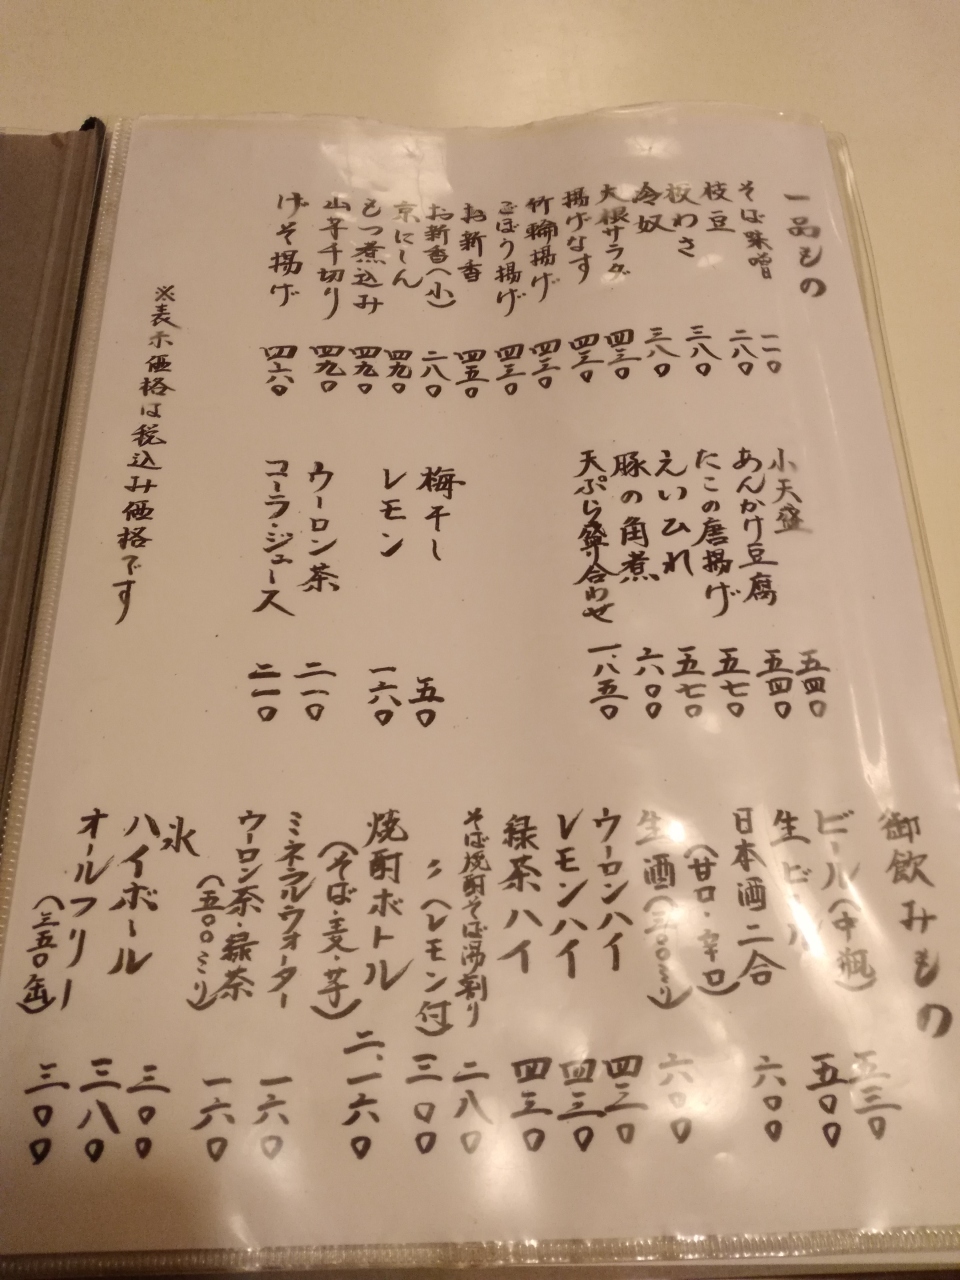 一品もの
そば味噌 一一〇
枝豆 二八〇
板わさ 三八〇
冷奴 三八〇
大根サラダ 四三〇
揚げなす 四三〇
竹輪揚げ 四三〇
ごぼう揚げ 四三〇
お新香 四五〇
お新香(小) 二八〇
京にしん 四九〇
もつ煮込み 四九〇
山芋千切り 四九〇
げそ揚げ 四六〇
小天盛 五四〇
あんかけ豆腐 五四〇
たこの唐揚げ 五七〇
えいひれ 五七〇
豚の角煮 六〇〇
天ぷら盛り合わせ 一、八五〇
梅干し 五〇
レモン 一六〇
ウーロン茶 二一〇
コーラ・ジュース 二一〇
※表示価格は税込み価格です
御飲みもの
ビール(中瓶) 五三〇
生ビール 五〇〇
日本酒二合 六〇〇
(甘口・辛口)
生酒(三〇〇ミリ) 六〇〇
ウーロンハイ 四三〇
レモンハイ 四三〇
緑茶ハイ 四三〇
そば焼酎そば湯割り 二八〇
〃(レモン付) 三〇〇
焼酎ボトル 二、一六〇
(そば・麦・芋)
ミネラルウォーター 一六〇
ウーロン茶・緑茶 一六〇
(五〇〇ミリ)
氷 三〇〇
ハイボール 三八〇
オールフリー 三〇〇
(三五〇缶)